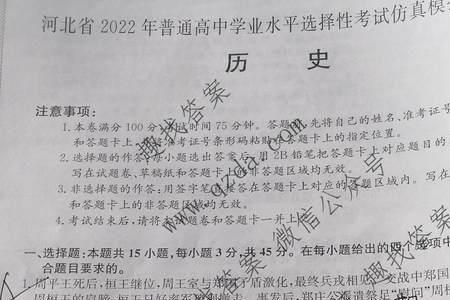 河北省 2022 年普通高中学业水平选择性考试仿真模
历 史
注意事项:
1. 本卷满分 100 分,考试时间 75 分钟。答题前,先将自己的姓名、准考证号
和答题卡上,并将准考证号条形码粘贴在答题卡上的指定位置。
2. 选择题的作答:每小题选出答案后,用 2B 铅笔把答题卡上对应题目的
写在试题卷、草稿纸和答题卡上的非答题区域均无效。
3. 非选择题的作答:用签字笔直接答在答题卡上对应的答题区域内。写在
和答题卡上的非答题区域均无效。
4. 考试结束后,请将本试题卷和答题卡一并上
一、选择题:本题共 15 小题,每小题 3 分,共 45 分。在每小题给出的四个选项中
合题目要求的。
1. 周平王死后,桓王继位,周王室与郑国矛盾激化,最终兵戎相见。交战中郑国
事发后,郑庄公派遣祭足“慰问”周桓
趣找答案
微信公众号
趣找答案